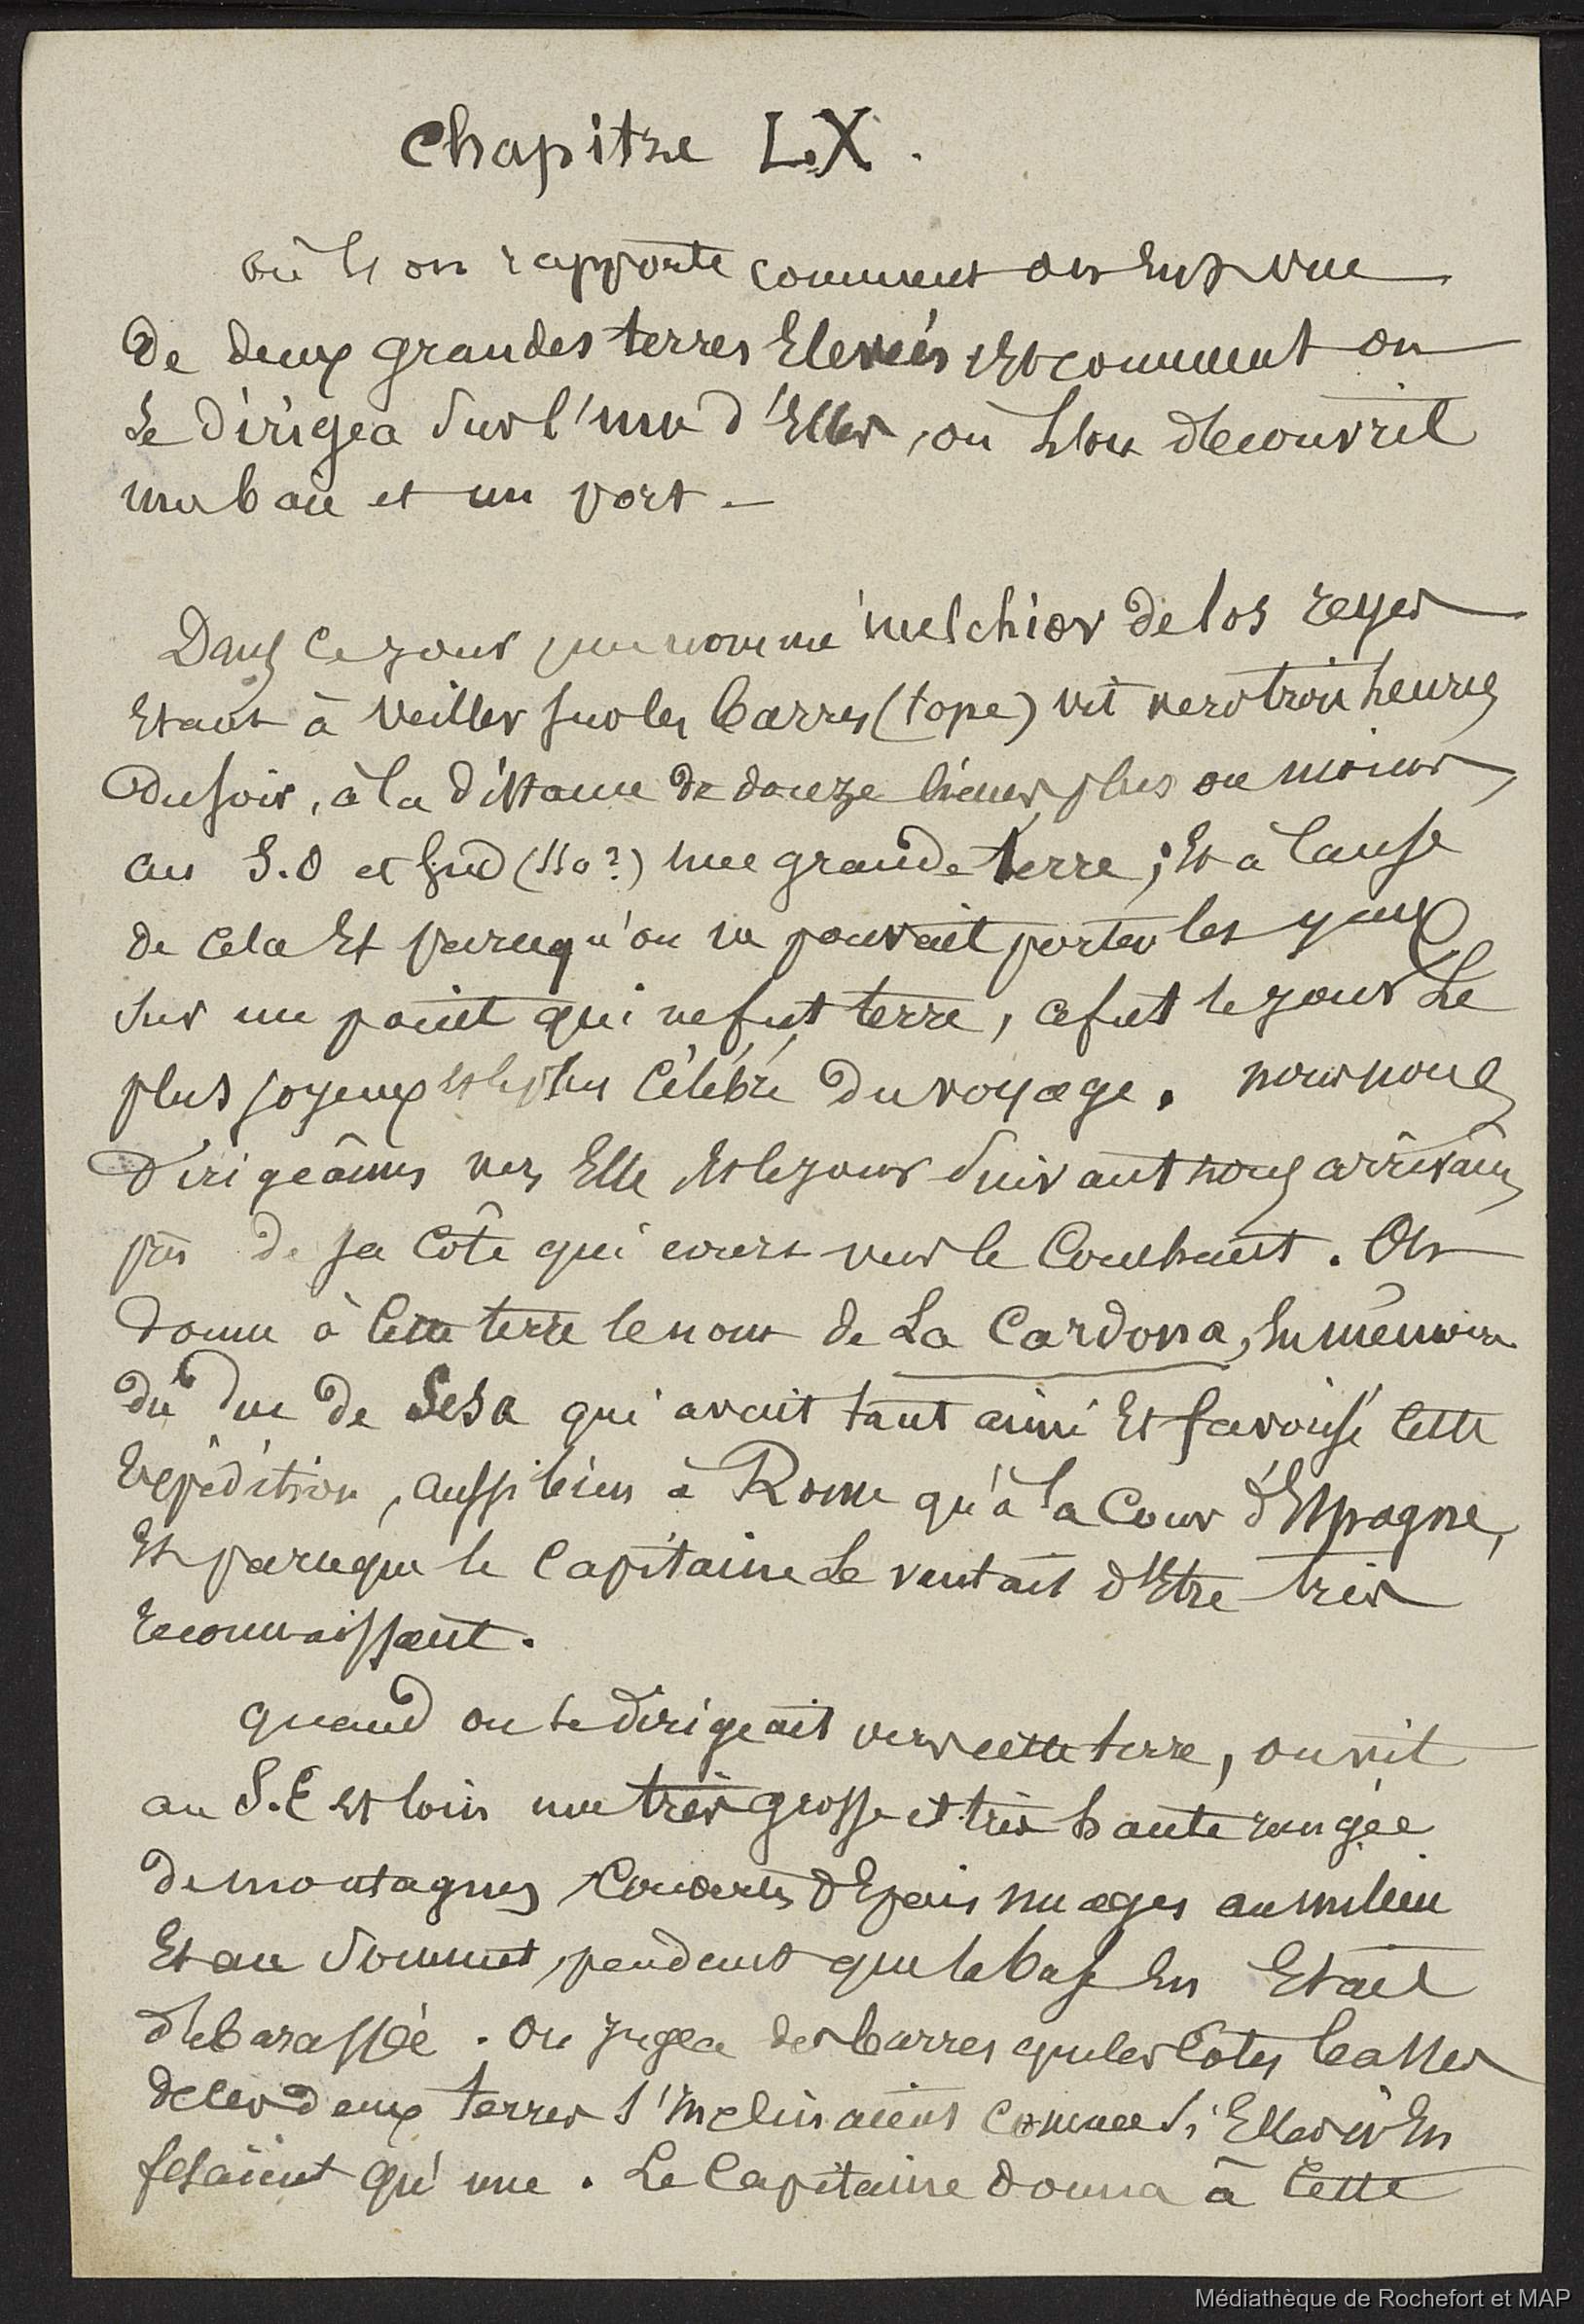 Chapitre LX.
où l'on rapporte comment on eut vue
de deux grandes terres Elevées et comment on
se dirigea sur l'une d'Elles, où l'on découvrit
une baie et un port.
Dans ce jour, un nommé melchior de los reyes
Etant à veiller sur les barres (tope) vit vers trois heures
du soir, à la distance de douze lieues plus ou moins,
au S.O et Sud (SSO?) une grande terre; Et à cause
de cela Et parcequ'on ne pouvait porter les yeux
sur un point qui ne fut terre, ce fut le jour Le
plus joyeux et le plus célébré du voyage. nous nous
dirigeâmes vers Elle Et le jour suivant nous arrivâmes
près de sa côte qui court vers le Couchant. On
donna à cette terre le nom de La Cardona, en mémoire
du duc de Sesa qui avait tant aimé Et favorisé cette
Expédition, aussi bien à Rome qu'à la Cour d'Espagne,
Et parceque le Capitaine se vantait d'Etre très
reconnaissant.
quand on se dirigeait vers cette terre, on vit
au S.E et loin une très grosse et très haute rangée
de montagnes Couvertes d'Epais nuages au milieu
Et au Sommet, pendant que la base En Etait
débarassée. On jugea des barres que les Côtes basses
de ces deux terres s'inclinaient comme si Elles n'En
fesaient qu'une. Le Capitaine donna à Cette
Médiathèque de Rochefort et MAP